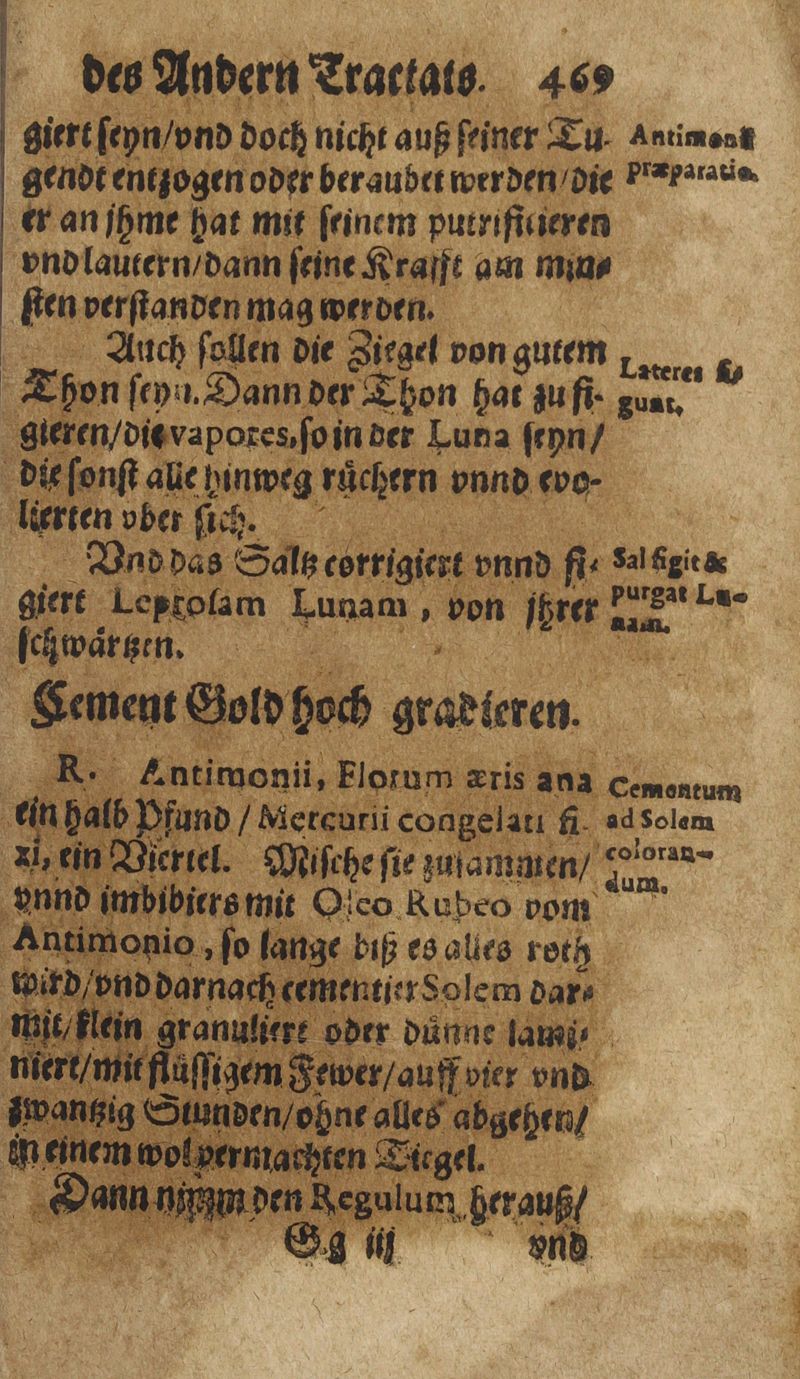 des Andern Tractats. 469
giert seyn/vnd doch nicht auß seiner Tu-
gendt entzogen oder beraubet werden/die
er an jhme hat mit seinem putrificieren
vnd lautern/dann seine Krafft am min-
sten verstanden mag werden.
Antimonii
præparatio.
Auch sollen die Ziegel von gutem
Thon seyn. Dann der Thon hat zu fi-
gieren/die vapores, so in der Luna seyn/
die sonst alle hinweg rüchern vnnd evo-
lierten vber sich.
Lateres fi-
gunt.
Vnd das Saltz corrigiert vnnd fi-
giert Leprosam Lunam, von jhrer
schwärtzen.
Sal figit &
purgat Lu-
nam.
Cement Gold hoch gradieren.
R. Antimonii, Florum æris ana
ein halb Pfund / Mercurii congelati fi-
xi, ein Viertel. Mische sie zusammen/
vnnd imbibiers mit Oleo Rubeo vom
Antimonio, so lange biß es alles roth
wird/vnd darnach cementier Solem dar-
mit/klein granuliert oder dünne lami-
niert/mit flüssigem Fewer/auff vier vnd
zwantzig Stunden/ohne alles abgehen/
in einem wol vermachten Tiegel.
Cementum
ad Solem
coloran-
dum.
Dann nimm den Regulum herauß/
Gg iij vnd